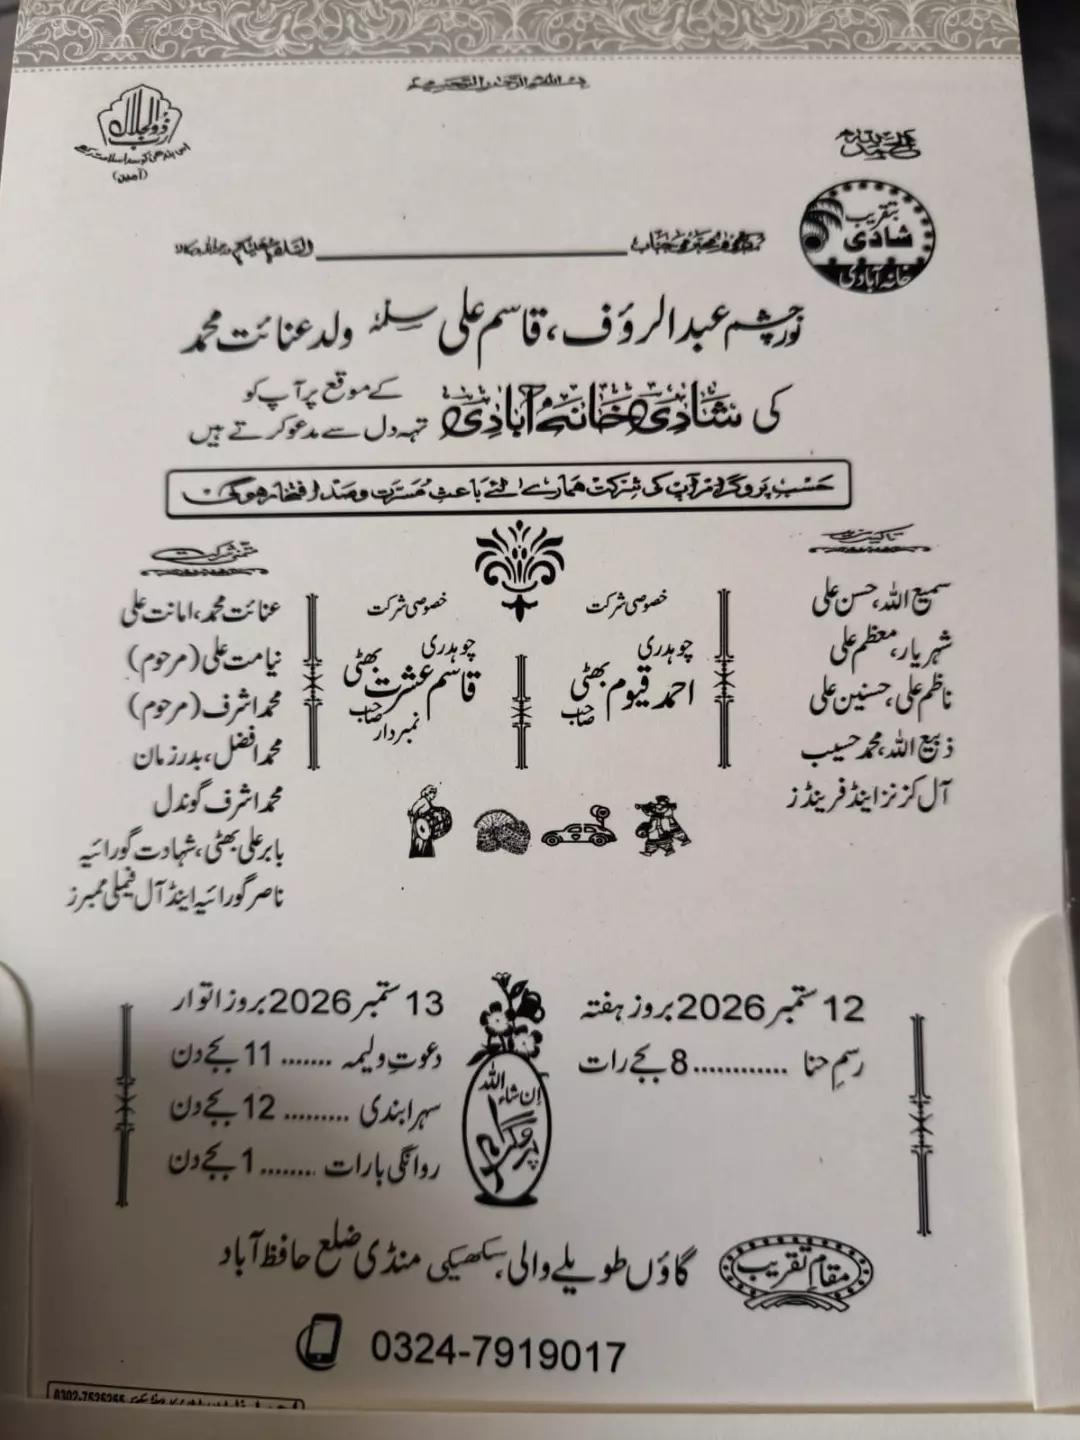 بسم اللہ الرحمن الرحیم
رب ذوالجلال
اس بندھن کو سدا سلامت رکھے
(آمین)
بتقریب
شادی
خانہ آبادی
مکرمی و محترمی جناب ــــــــــــــــ السلام علیکم
نورچشم عبدالرؤف، قاسم علی سلمہٗ ولد عنائت محمد
کی شادی خانہ آبادی کے موقع پر آپ کو
تہہ دل سے مدعو کرتے ہیں
حسب پروگرام آپ کی شرکت ہمارے لئے باعث مسرت و صد افتخار ہوگی
تاکید مزید
سمیع اللہ، حسن علی
شہریار، معظم علی
ناظم علی، حسنین علی
ذبیع اللہ، محمد حسیب
آل کزنز اینڈ فرینڈز
خصوصی شرکت
چوہدری
احمد قیوم بھٹی
صاحب
خصوصی شرکت
چوہدری
قاسم عشرت بھٹی
صاحب
نمبردار
متمنی شرکت
عنائت محمد، امانت علی
نیامت علی (مرحوم)
محمد اشرف (مرحوم)
محمد افضل، بدر زمان
محمد اشرف گوندل
بابر علی بھٹی، شہادت گورائیہ
ناصر گورائیہ اینڈ آل فیملی ممبرز
ان شاء اللہ
پروگرام
12 ستمبر 2026 بروز ہفتہ
رسمِ حنا ............ 8 بجے رات
13 ستمبر 2026 بروز اتوار
دعوتِ ولیمہ ....... 11 بجے دن
سہرا بندی ......... 12 بجے دن
روانگی بارات ........ 1 بجے دن
مقامِ تقریب
گاؤں طویلے والی، سکھیکی منڈی ضلع حافظ آباد
0324-7919017
0302-7525255